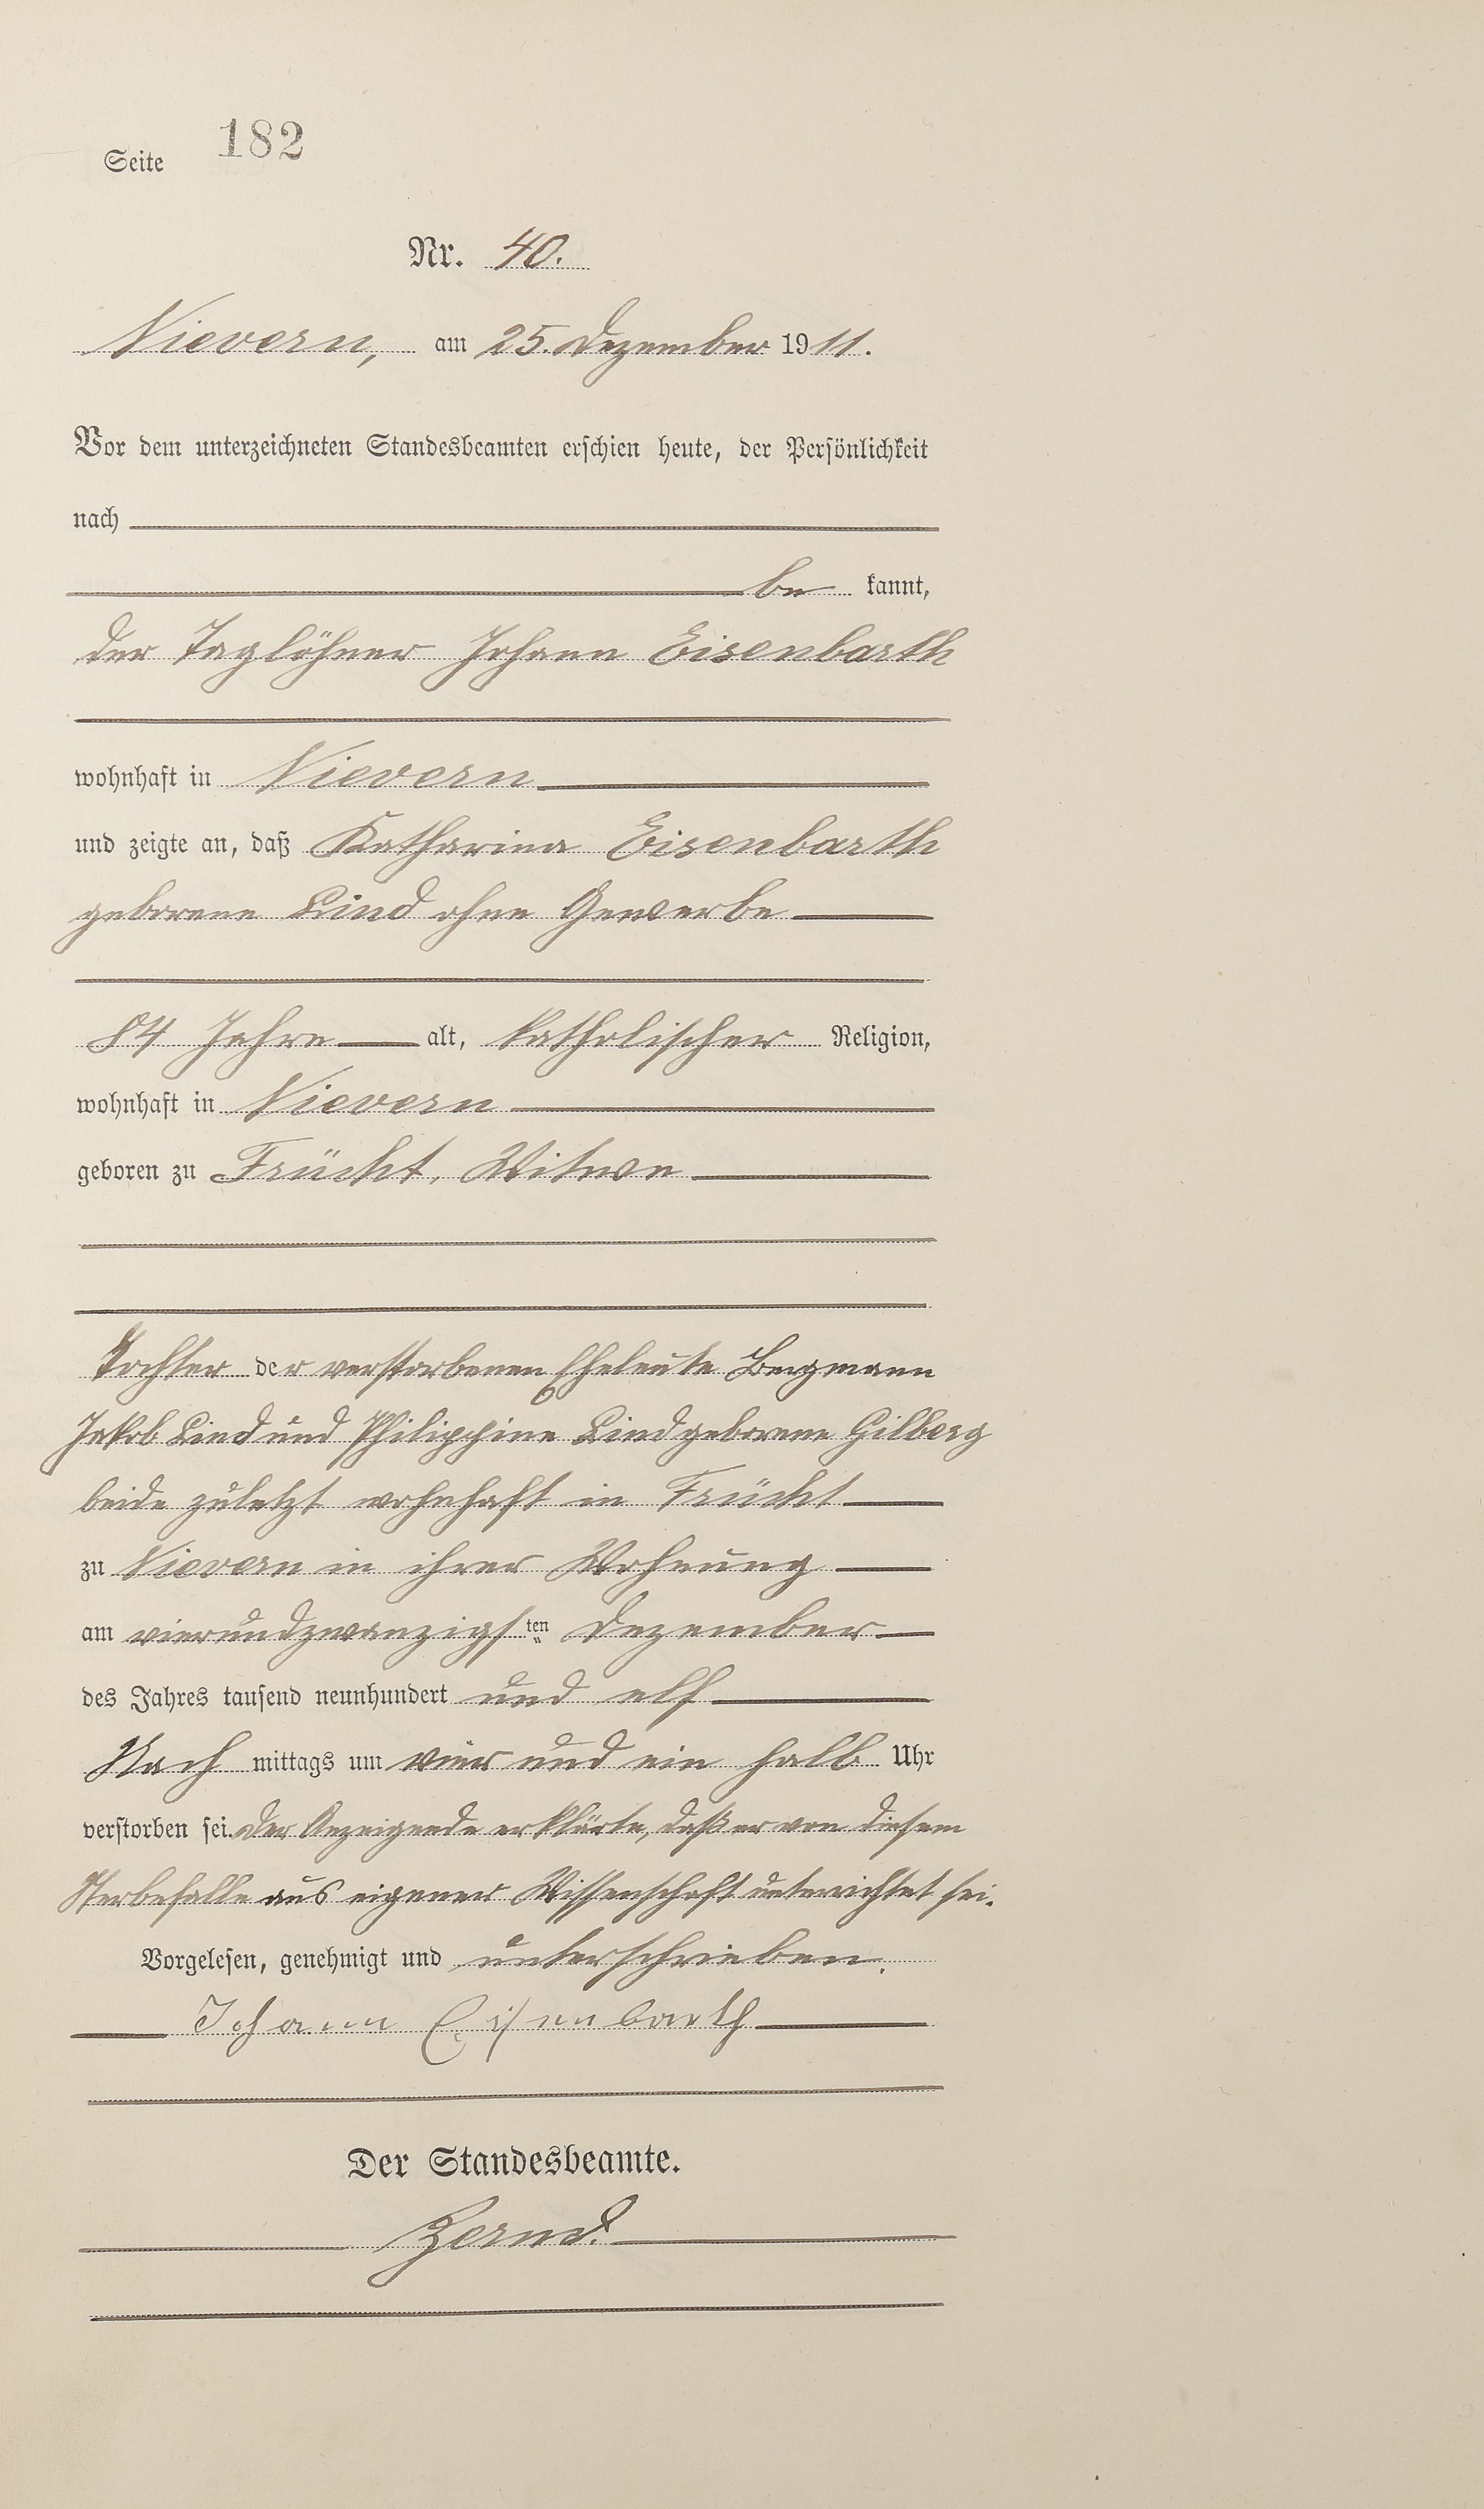 Seite 182
Nr. 40.
Nievern, am 25. Dezember 1911.
Vor dem unterzeichneten Standesbeamten erschien heute, der Persönlichkeit
nach
be kannt,
der Taglöhner Johann Eisenbarth
wohnhaft in Nievern
und zeigte an, daß Katharina Eisenbarth
geborene Lind ohne Gewerbe
84 Jahre alt, katholischer Religion,
wohnhaft in Nievern
geboren zu Frücht, Witwe
Tochter der verstorbenen Eheleute Bergmann
Jakob Lind und Philippine Lind geborene Gilberg
beide zuletzt wohnhaft in Frücht
zu Nievern in ihrer Wohnung
am vierundzwanzigsten Dezember
des Jahres tausend neunhundert und elf
Nach mittags um vier und ein halb Uhr
verstorben sei. Der Anzeigende erklärte, daß er von diesem
Sterbefalle aus eigener Wissenschaft unterrichtet sei.
Vorgelesen, genehmigt und unterschrieben.
Johann Eisenbarth
Der Standesbeamte.